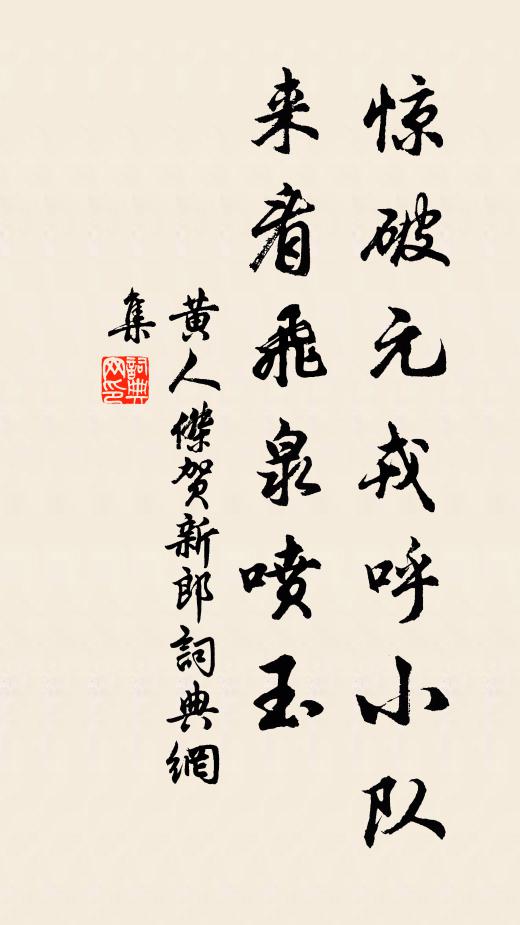 惊破元戎呼小队
来看飞泉喷玉
黄人傑贺新郎詞典網
集
詞典网印